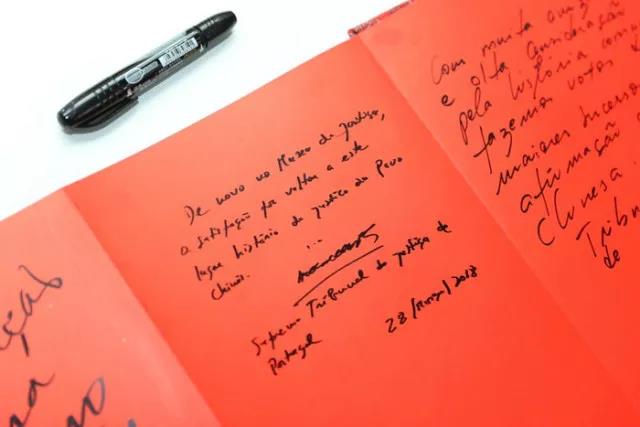 De novo no Museu da Justiça,
a satisfação por voltar a este
lugar histórico da justiça do Povo
Chinês. ...
Supremo Tribunal de Justiça de
Portugal 28/Março/2018
Com muita amiz
e alta consideração
pela história com
fazemos votos
maiores sucesso
afirmação
Chinesa
Tribu
de